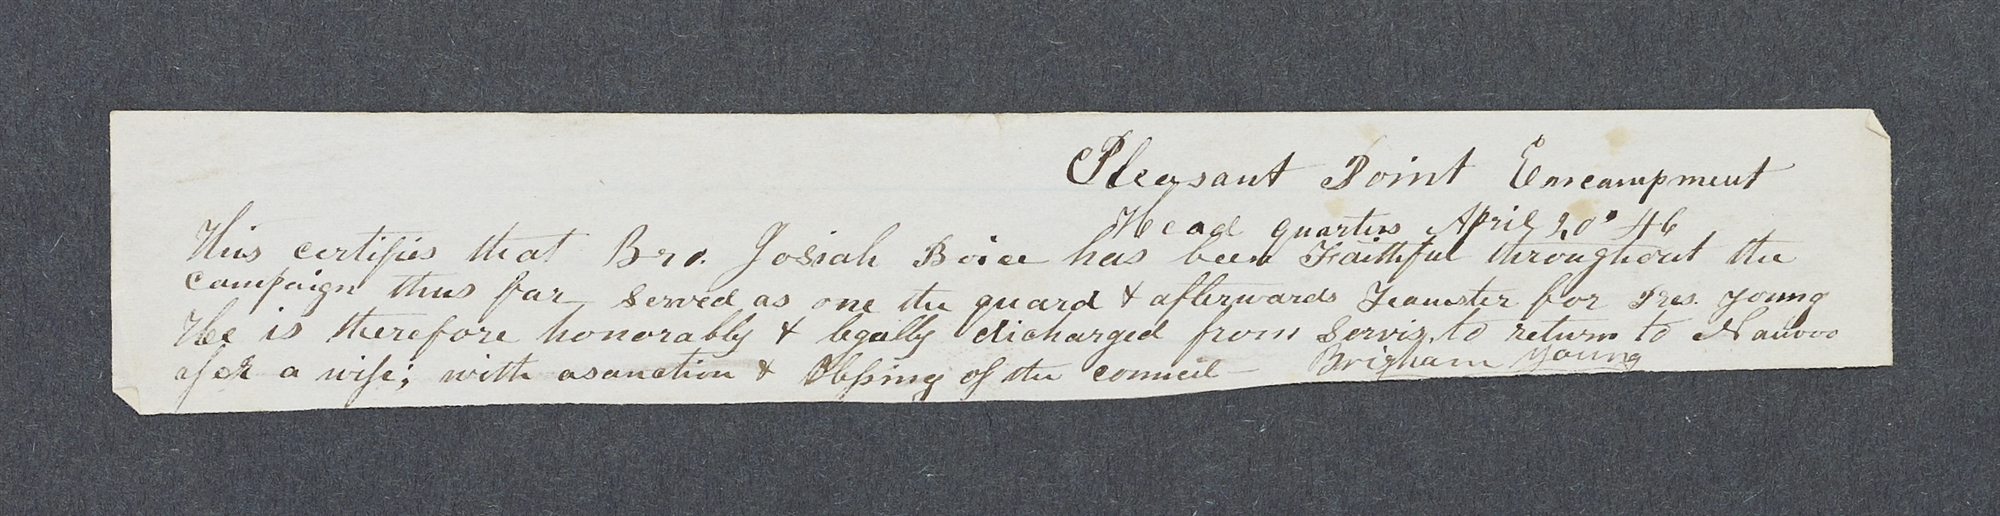 Pleasant Point Encampment
Head quarters April 20' 46
This certifies that Bro. Josiah Boice has been Faithful throughout the
campaign thus far served as one the guard & afterwards Teamster for Pres. Young
He is therefore honorably & legally dicharged from Servis, to return to Nauvoo
after a wife; with a sanction & Blessing of the council — Brigham Young